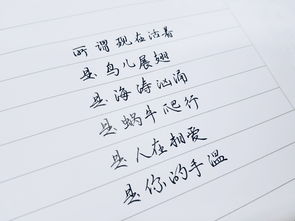 所谓现在活着
是鸟儿展翅
是海涛汹涌
是蜗牛爬行
是人在相爱
是你的手温